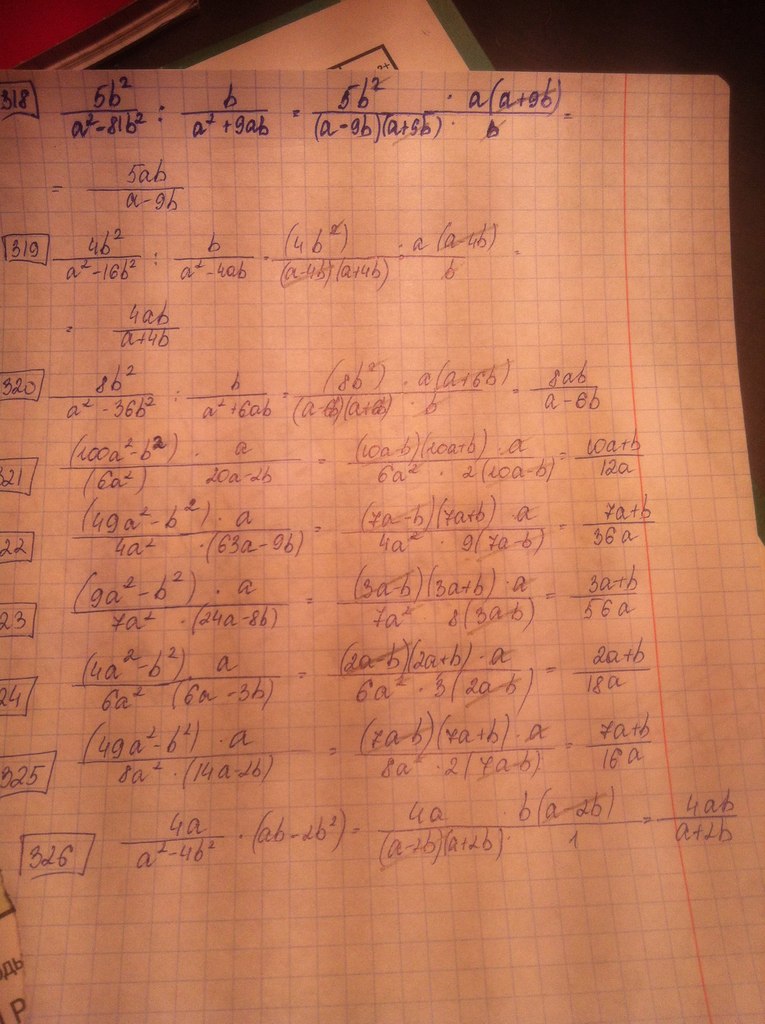 318 5b²/(a²-81b²) : b/(a²+9ab) = 5b² · a(a+9b)/((a-9b)(a+9b) · b) =
= 5ab/(a-9b)
319 4b²/(a²-16b²) : b/(a²-4ab) = (4b²)/((a-4b)(a+4b)) · a(a-4b)/b =
= 4ab/(a+4b)
320 8b²/(a²-36b²) : b/(a²+6ab) = (8b²) · a(a+6b)/((a-6b)(a+6b) · b) = 8ab/(a-6b)
321 (100a²-b²) · a/((6a²) 20a-2b) = (10a-b)(10a+b) · a/(6a² · 2(10a-b)) = 10a+b/12a
22 (49a²-b²) · a/(4a² · (63a-9b)) = (7a-b)(7a+b) · a/(4a² · 9(7a-b)) = 7a+b/36a
23 (9a²-b²) · a/(7a² · (24a-8b)) = (3a-b)(3a+b) · a/(7a² 8(3a-b)) = 3a+b/56a
24 (4a²-b²) · a/(6a² (6a-3b)) = (2a-b)(2a+b) · a/(6a² · 3(2a-b)) = 2a+b/18a
325 (49a²-b²) · a/(8a² · (14a-2b)) = (7a-b)(7a+b) · a/(8a² · 2(7a-b)) = 7a+b/16a
326 4a/(a²-4b²) · (ab-2b²) = 4a · b(a-2b)/((a-2b)(a+2b) · 1) = 4ab/(a+2b)